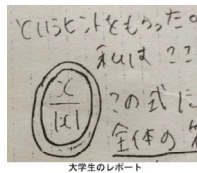 というヒントをもらった。
私は ??
x
|x|
?の式に
全体の
大学生のレポート